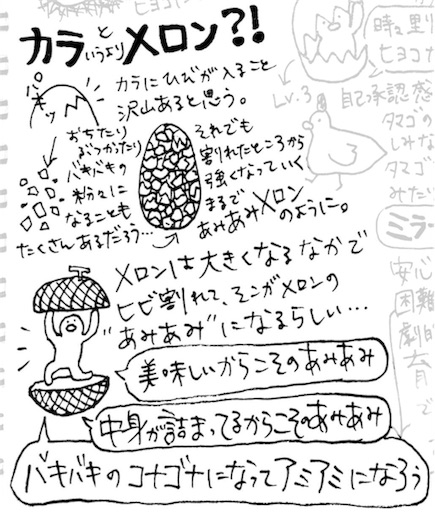 カラというよりメロン?!
バキッ
カラにひびが入ること
沢山あると思う。
おちたり
ぶつかったり
バキバキの
粉々に
なることも
たくさんあるだろう…
それでも
割れたところから
強くなっていく
まるで
あみあみメロン
のように。
メロンは大きくなるなかで
ヒビ割れて、そこがメロンの
"あみあみ"になるらしい…
美味しいからこそのあみあみ
中身が詰まってるからこそのあみあみ
バキバキのコナゴナになってアミアミになろう
ヒヨコ
Lv.3
自己承認感
タマゴの
しみな
タマゴ
みたい
ミラー
安心
困難
劇的
で